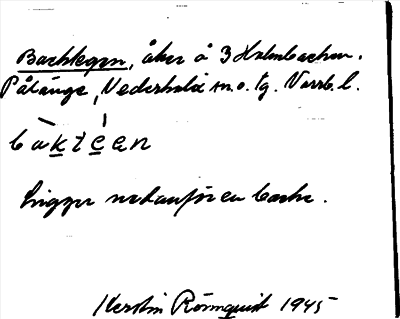 Backtegen, åker å 3 Holmbacken.
Pålänge, Nederkalix sn. o. tg. Norrb. l.
bàktéen
Ligger nedanför en backe.
Kerstin Rönnquist 1945